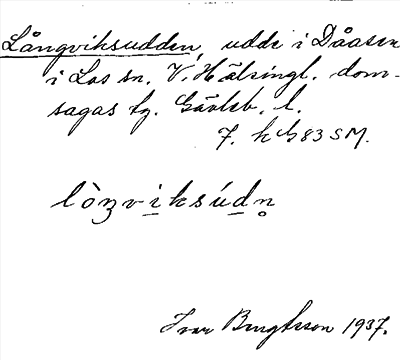 Långviksudden, udde i Dåasen
i Los sn, V. Hälsingl. dom-
sagas tg. Gävleb. l.
7. k G 83 SM.
lòŋviksúdn̥
Ivar Bengtsson 1937.